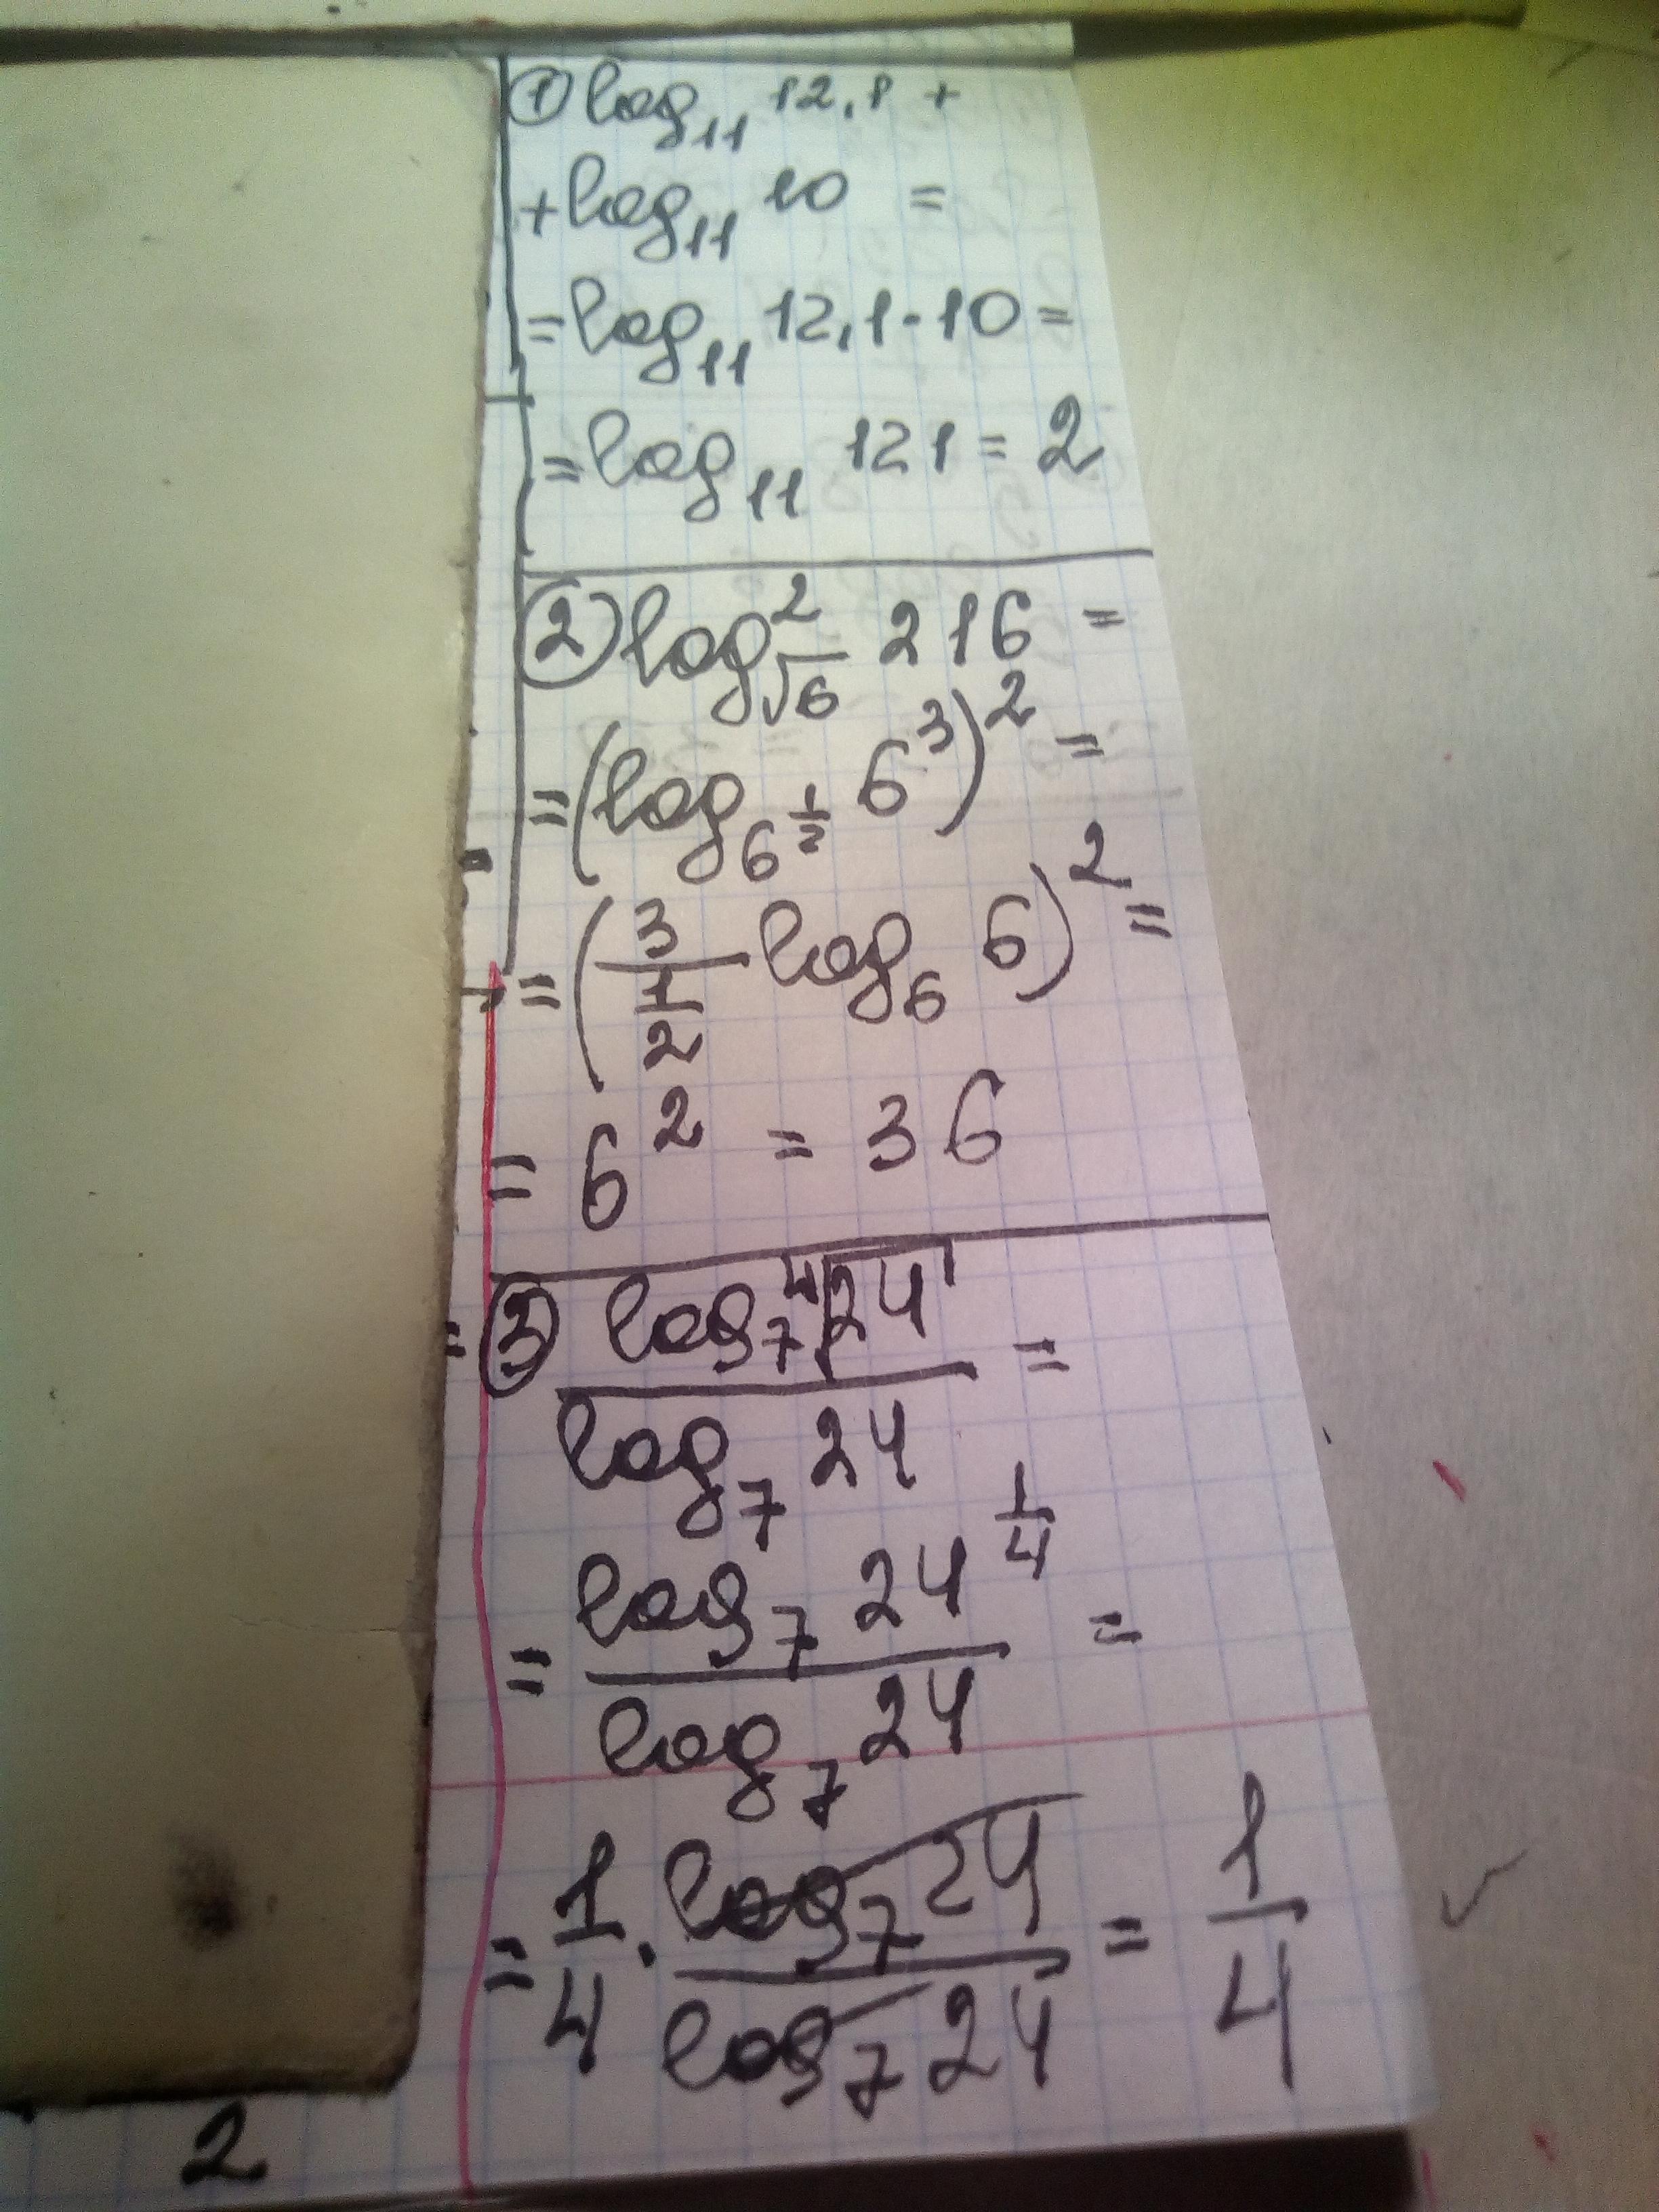 ① log₁₁ 12,1 +
+ log₁₁ 10 =
= log₁₁ 12,1 · 10 =
= log₁₁ 121 = 2
② log²_√6 216 =
= (log_6^(1/2) 6³)² =
= (3/(1/2) log₆ 6)² =
= 6² = 36
= ③ log₇ ⁴√24 / log₇ 24 =
= log₇ 24^(1/4) / log₇ 24 =
= 1/4 · log₇ 24 / log₇ 24 = 1/4
2